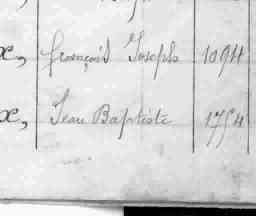 x, François Joseph 1094
x, Jean Baptiste 1754